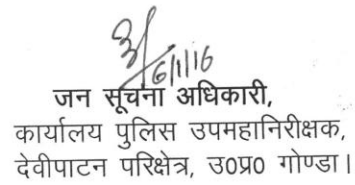 6/1/16
जन सूचना अधिकारी,
कार्यालय पुलिस उपमहानिरीक्षक,
देवीपाटन परिक्षेत्र, उ0प्र0 गोण्डा।